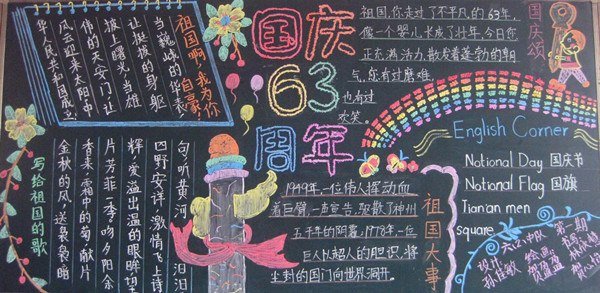 祖国啊,我为你
自豪,
当巍峨的华表
让挺拔的身躯
披上曙光,当雄
伟的天安门让
风云迎来太阳中
华人民共和国成立
国庆
63
周年
祖国,你走过了不平凡的63年,
像一个婴儿长成了壮年,今日您
正充满活力,散发着蓬勃的朝
气,您有过磨难
也有过
欢笑
国庆颂
English Corner
National Day 国庆节
National Flag 国旗
Tian'an men
square
写给祖国的歌
句,听黄河
四野安详,激情飞上诗
辉,爱溢出温的眼眸望
片芳菲一季,吻夕阳余
季来,雪中的菊,献片
金秋的风,送袅袅暗
1949年一位伟人挥动血
着巨臂,一声宣告,驱散了神州
五千年的阴霾,1978年,一位
巨人以超人的胆识,将
尘封的国门向世界洞开。
祖国大事
第一期
六(2)中队
设计
绘画